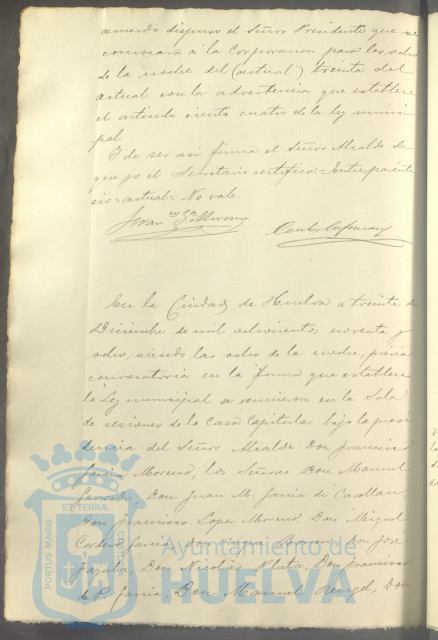 acuerdo dispuso el Señor Presidente que se
convocara á la Corporacion para las ocho
de la noche del (actual) treinta del
actual con la advertencia que establece
el artículo ciento cuatro de la ley muni
pal.
Y de ser así firma el Señor Alcalde de
que yo el Secretario certifico = Entre parénte
sis = actual = No vale
Fran.co Ga. Moreno
En la Ciudad de Huelva a treinta de
Diciembre de mil ochocientos noventa y
ocho, siendo las ocho de la noche, previa
convocatoria en la forma que establece
la Ley municipal se reunieron en la Sala
de sesiones de la Casa Capitular bajo la presi
dencia del Señor Alcalde Don Francisco
García Moreno, los Señores Don Manuel
Garrido, Don Juan M. García de
Don Francisco Lopez Moreno, Don Miguel
Cordero García, Don Don José
Zapata, Don Nicolás Plata, Don Francisco
de P. García, Don Manuel Rengel, Don
PORTUS MARIS
ET TERRÆ
CUSTODIA
Ayuntamiento de
HUELVA